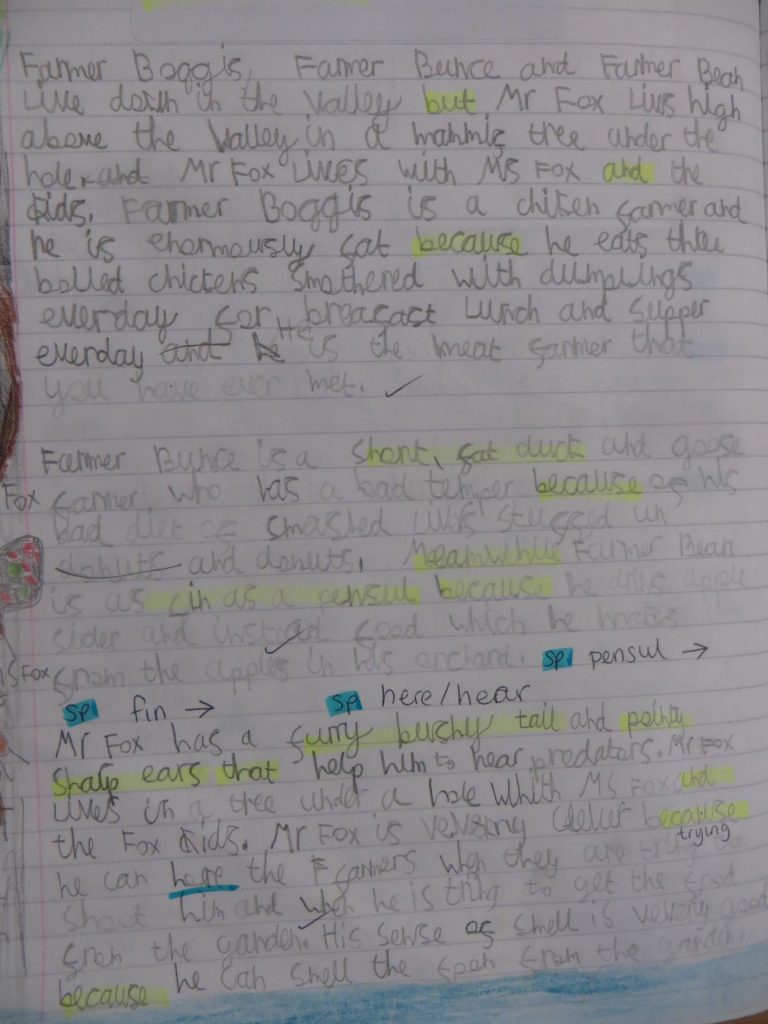 Farmer Boggis, Farmer Bunce and Farmer Bean
Live down in the valley but Mr Fox Livs high
above the Valley in a mahmig tree under the
hole and Mr Fox Lives with Ms Fox and the
kids. Farmer Boggis is a chiken farmer and
he is enormously fat because he eats three
boiled chickens smothered with dumplings
everday for breafast Lunch and Supper
everday and He is the meat farmer that
you have ever met.
Farmer Bunce is a short, fat duck and goose
Fox farmer, who has a bad temper because of his
bad diet of smashed livers stuffed in
donuts and donuts. Meanwhile Farmer Bean
is as fin as a pensul because he drins apple
sider and instead food which he
s Fox from the apples in his orchard. sp pensul →
sp fin → sp here/hear
Mr Fox has a furry bushy tail and pointy
Sharp ears that help him to hear predators. Mr Fox
lives in a tree under a hole which Ms Fox and
the Fox kids. Mr Fox is very clever because
trying
he can here the Farmers when they are
shoot him and when he is tring to get the
from the garden. His sense of smell is very good
because he can smell the from the garden.